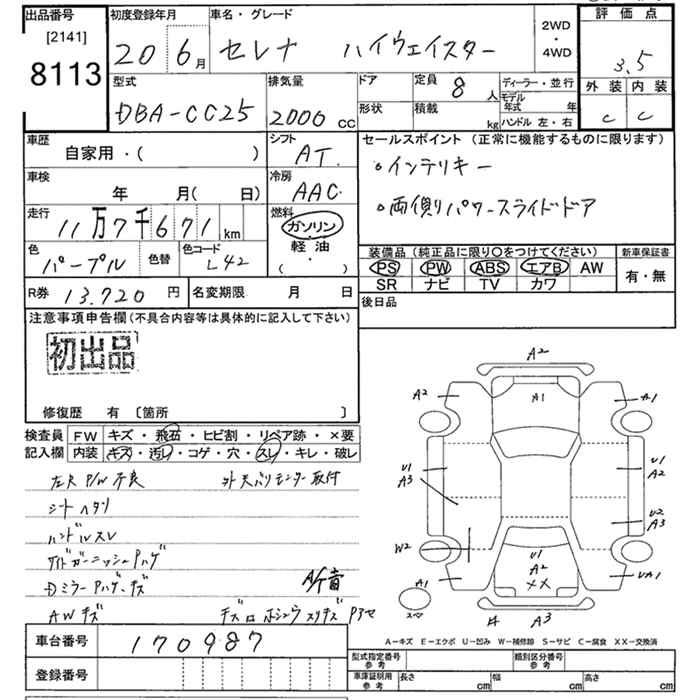 出品番号
[2141]
8113
初度登録年月
20 6月
車名・グレード
セレナ ハイウェイスター
2WD
・
4WD
評価点
3.5
外装 内装
C C
型式
DBA-CC25
排気量
2000 cc
ドア
形状
定員 8 人
積載 kg
ディーラー・並行
モデル年式 年
ハンドル 左・右
車歴
自家用・( )
シフト
AT
車検
年 月( 日)
冷房
AAC
走行
11万7千671km
燃料
ガソリン
軽油
( ・ )
色
パープル
色替
色コード
L42
R券 13.720 円
名変期限 月 日
セールスポイント(正常に機能するものに限ります)
・インテリキー
・両側パワースライドドア
装備品(純正品に限り○をつけてください)
新車保証書
PS PW ABS エアB AW
SR ナビ TV カワ
有・無
後日品
注意事項申告欄(不具合内容等は具体的に記入して下さい)
初出品
修復歴 有 〔箇所 〕
検査員
記入欄
FW キズ・飛石・ヒビ割・リペア跡・×要
内装 キズ・汚レ・コゲ・穴・スレ・キレ・破レ
左R P/W不良
シートヘタリ
ハンドルスレ
サイドガーニッシュPハゲ
Dミラー Pハゲ・キズ
AWキズ
A2
A2 A1 A1
U1 U1
A3 A2
U2
A3
W2
U1
A2
XX
A1 UA1
スペア
A3
A-キズ E-エクボ U-凹み W-補修跡 S-サビ C-腐食 XX-交換済
車台番号 170987
登録番号
型式指定番号
参考
類別区分番号
参考
車庫証明用
参考
長さ cm
幅 cm
高さ cm